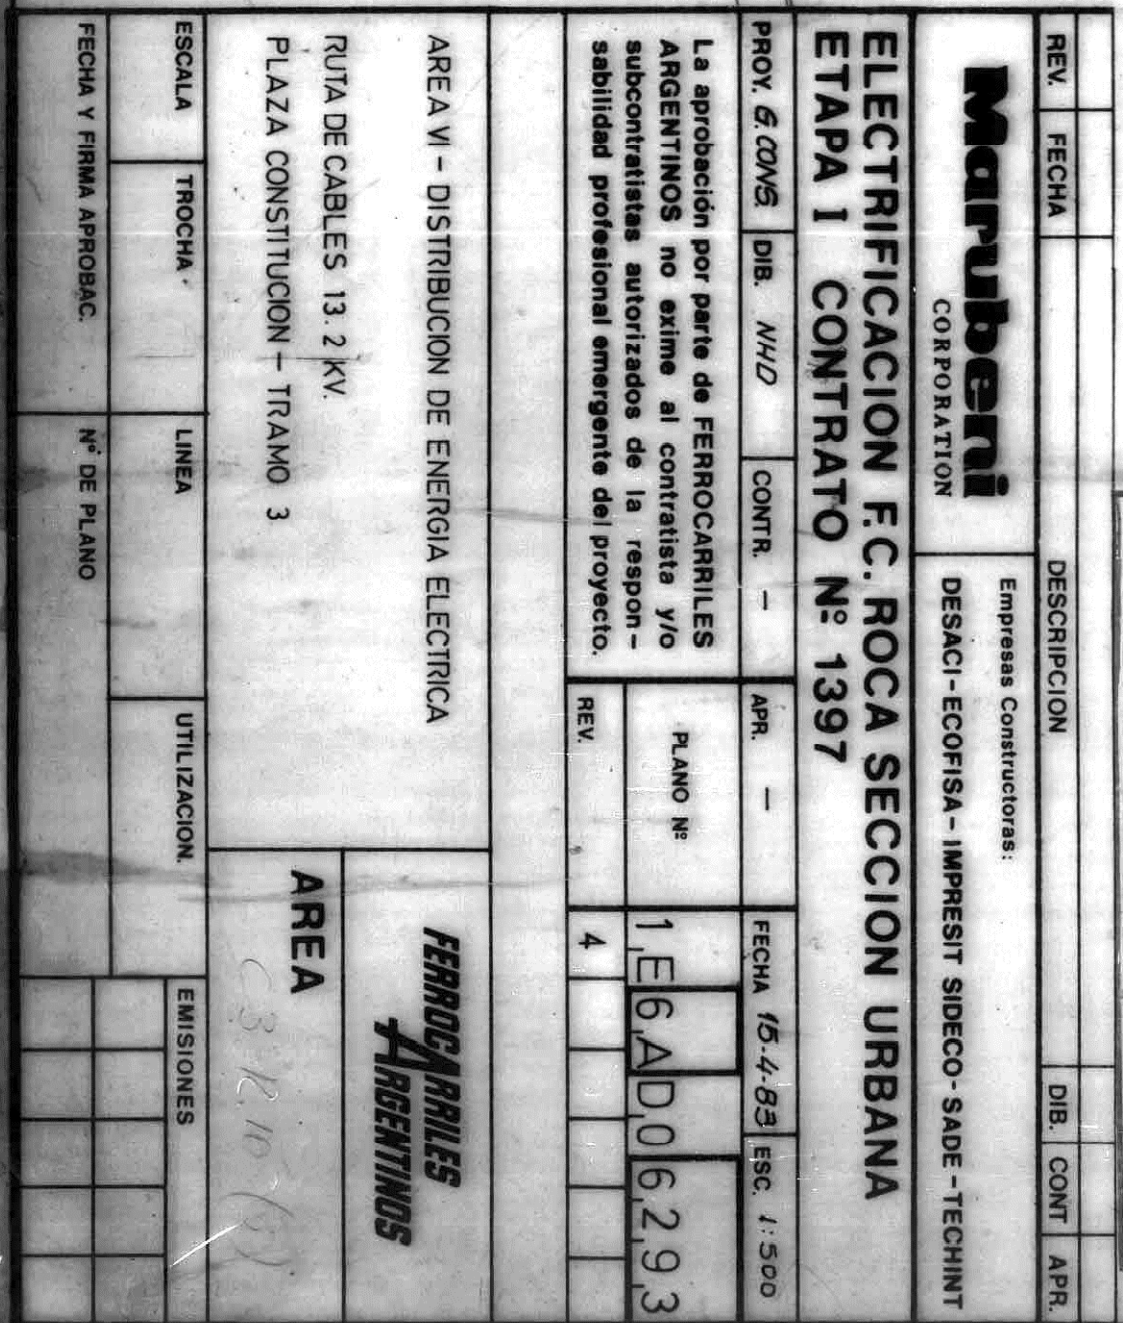 REV. FECHA DESCRIPCION DIB. CONT APR.
Marubeni
CORPORATION
Empresas Constructoras:
DESACI-ECOFISA-IMPRESIT SIDECO-SADE-TECHINT
ELECTRIFICACION F.C. ROCA SECCION URBANA
ETAPA I CONTRATO Nº 1397
PROY. G.CONS. DIB. NHD CONTR. — APR. — FECHA 15-4-83 ESC. 1:500
La aprobación por parte de FERROCARRILES
ARGENTINOS no exime al contratista y/o
subcontratistas autorizados de la respon-
sabilidad profesional emergente del proyecto.
PLANO Nº 1,E6,AD,06,2,9,3
REV. 4
AREA VI - DISTRIBUCION DE ENERGIA ELECTRICA
RUTA DE CABLES 13.2 KV.
PLAZA CONSTITUCION - TRAMO 3
FERROCARRILES
ARGENTINOS
AREA
ESCALA TROCHA LINEA UTILIZACION. EMISIONES
FECHA Y FIRMA APROBAC. Nº DE PLANO